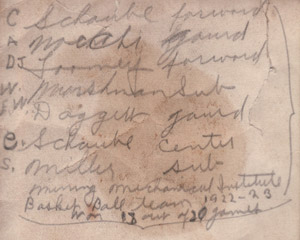 C Schaube forward
A McCht gaurd
DJ Toomey forward
W. Marshman Sub
S.W. Daggett gaurd
C. Schaube Center
S. Miller sub
Mining Mechanical Institute
Basket Ball team 1922-23
Won 18 out of 20 games